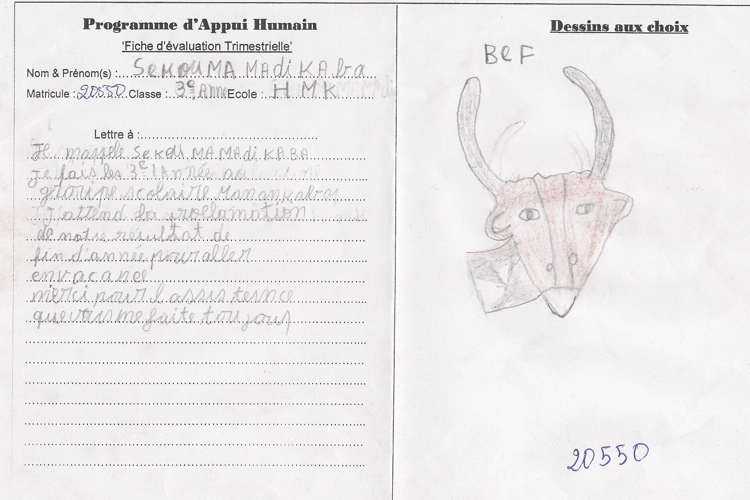 Programme d'Appui Humain
'Fiche d'évaluation Trimestrielle'
Nom & Prénom(s) : SeKOUMA MAdi KABa
Matricule : 20550 Classe : 3e Anne Ecole : H M K
Lettre à :
Je mappele SeKou MAMAdi KABA
je fais les 3e Année au
groupe scolaire
J'attend la proclamation
de notre résultat de
fin d'année pour aller
envacance
merci pour l'assistence
que vous me faite toujours
Dessins aux choix
BeF
20550